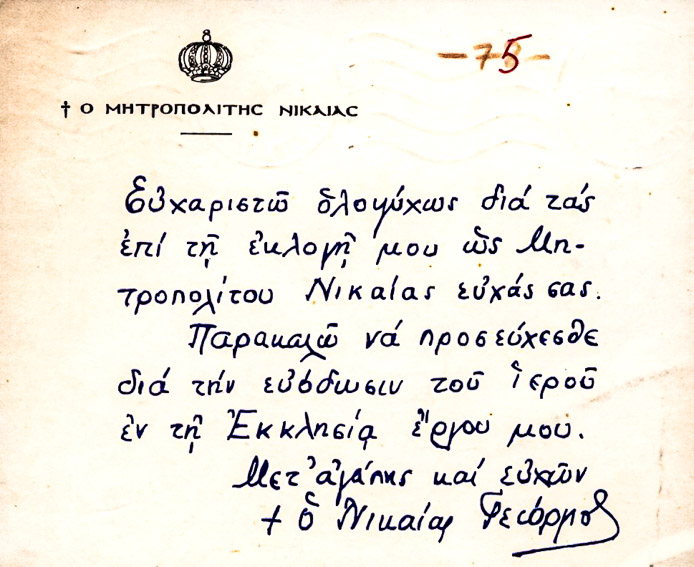 -75-
† Ο ΜΗΤΡΟΠΟΛΙΤΗΣ ΝΙΚΑΙΑΣ
Εὐχαριστῶ ὁλοψύχως διά τάς
ἐπί τῇ ἐκλογῇ μου ὡς Μη-
τροπολίτου Νικαίας εὐχάς σας.
Παρακαλῶ νά προσεύχεσθε
διά τήν εὐόδωσιν τοῦ ἱεροῦ
ἐν τῇ Ἐκκλησίᾳ ἔργου μου.
Μετ' ἀγάπης καί εὐχῶν
† ὁ Νικαίας Γεώργιος